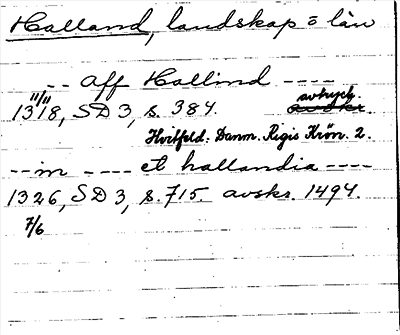 Halland, landskap o län
-- aff Hallind ----
11/11 avtryck.
1318, SD 3, s. 384. avskr.
Hvitfeld: Danm. Regis Krön. 2.
--in ---- et hallandia ----
1326, SD 3, s. 715. avskr. 1494.
7/6